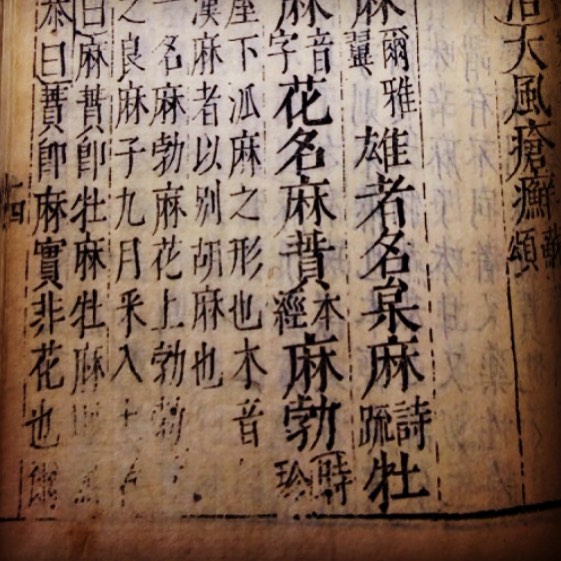 治大風瘡癬頌
麻爾雅翼雄者名枲麻詩疏牡
麻音字花名麻蕡本經麻勃時珍
屋下麻之形也木音
漢麻者以別胡麻也
一名麻勃麻花上勃勃
之良麻子九月采入土
曰麻蕡即牡麻牡麻則
恭曰蕡即麻實非花也爾